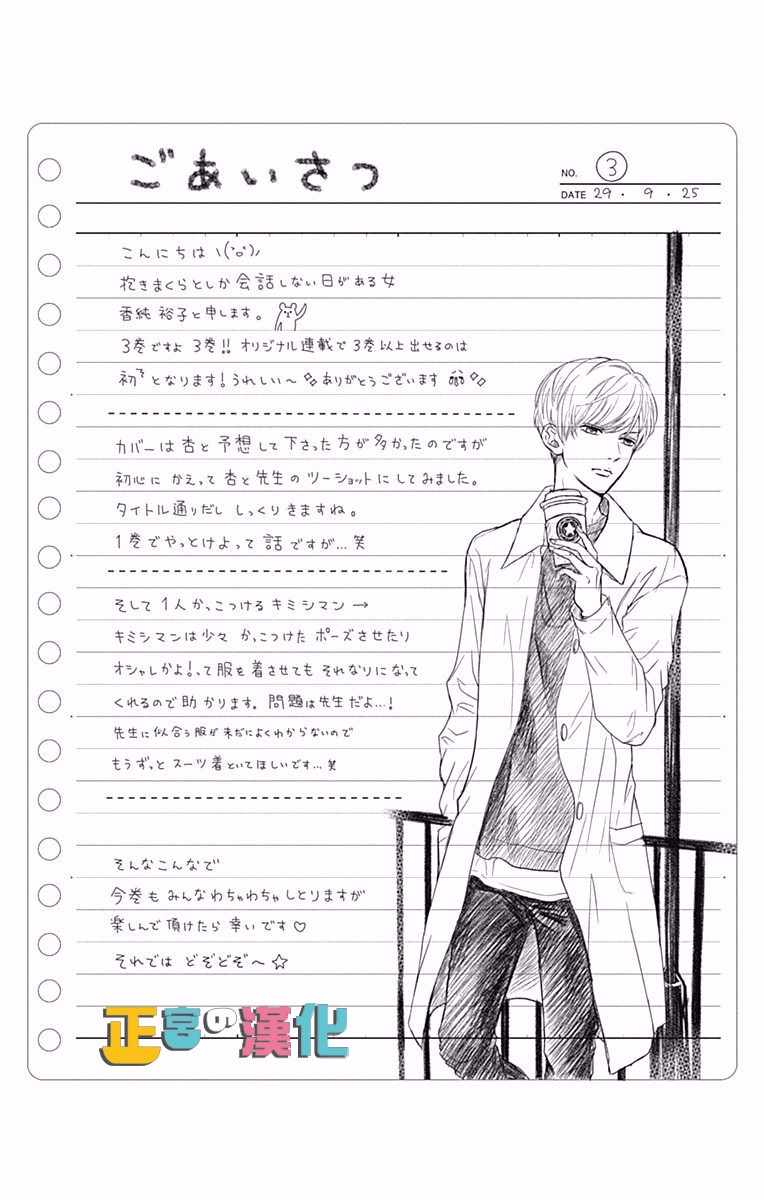 ごあいさつ
NO. 3
DATE 29・9・25
こんにちは ヽ(`o´)ﾉ
抱きまくらとしか会話しない日がある女
香純 裕子と申します。
3巻ですよ 3巻!! オリジナル連載で3巻以上出せるのは
初となります!うれしい〜 ありがとうございます
カバーは杏と予想して下さった方が多かったのですが
初心に かえって 杏と先生のツーショットにしてみました。
タイトル通りだし しっくりきますね。
1巻でやっとけよって 話ですが… 笑
そして1人かっこつけるキミシマン→
キミシマンは少々 かっこつけた ポーズさせたり
オシャレかよ!って服を着させても それなりになって
くれるので助かります。問題は先生だよ…!
先生に似合う服が未だによくわからないので
もうずっと スーツ着といてほしいです… 笑
そんなこんなで
今巻も みんなわちゃわちゃしとりますが
楽しんで頂けたら 幸いです♡
それでは どぞどぞ〜☆
正宮の漢化